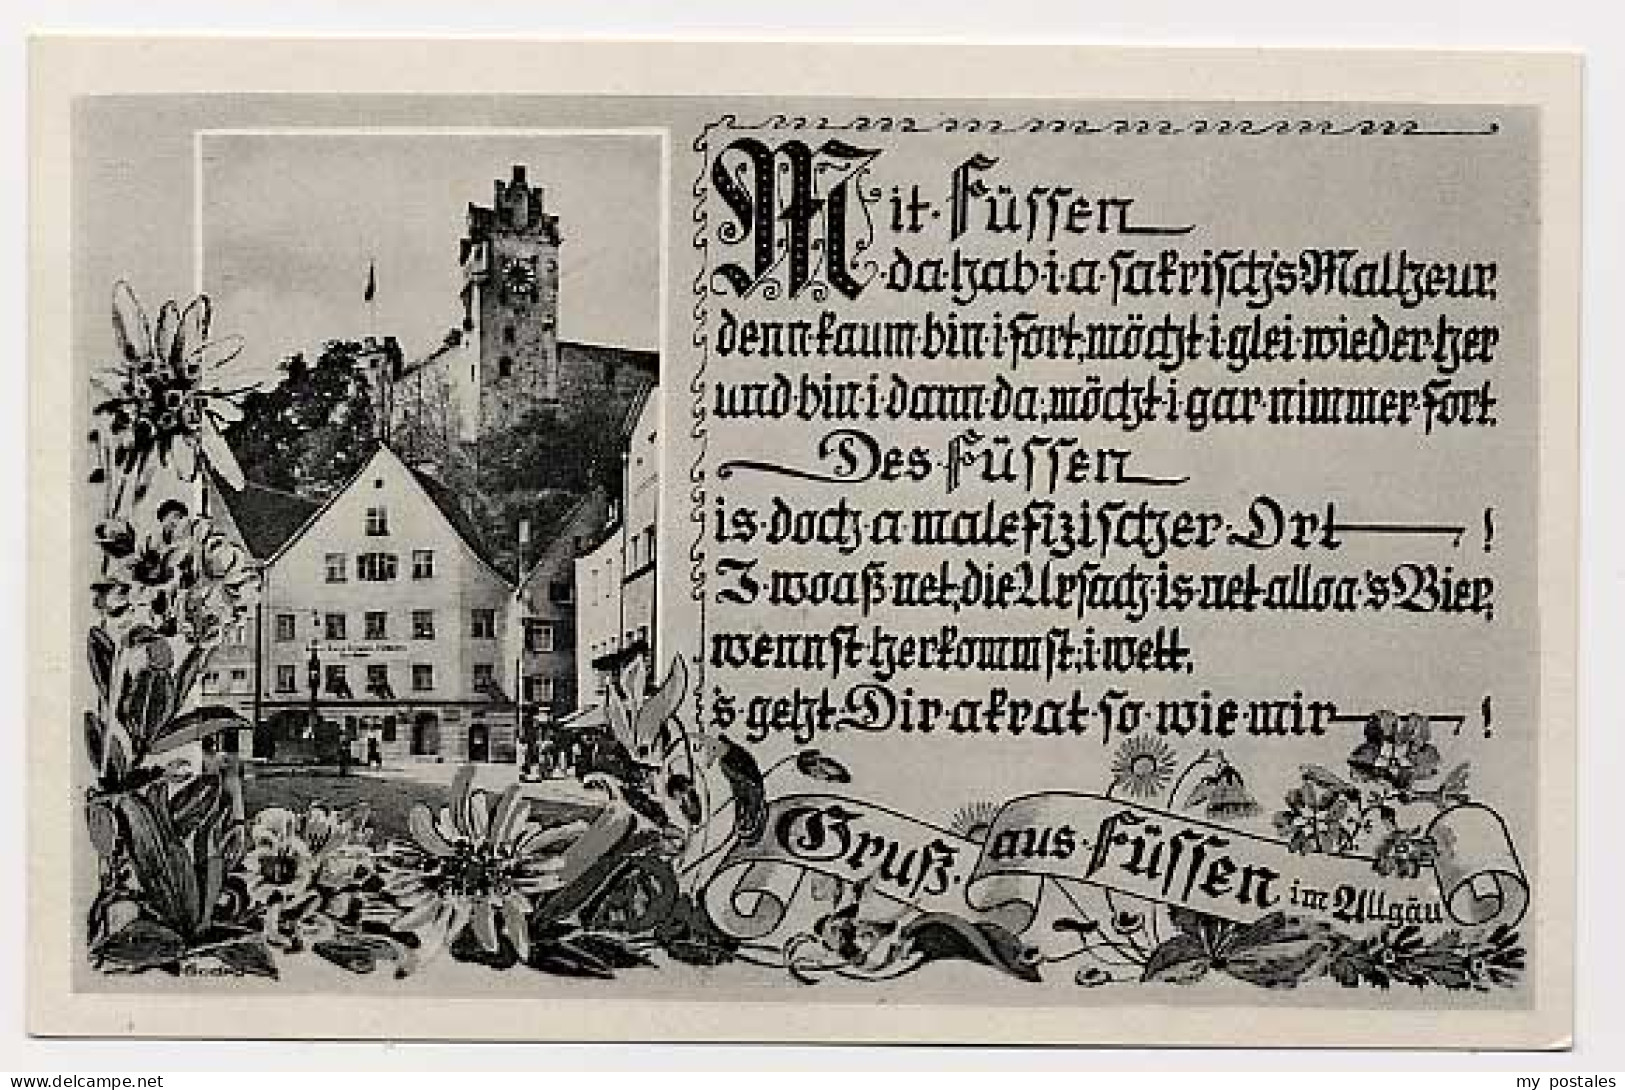 Mit Füssen
da hab i a sakrisch's Malheur,
denn kaum bin i fort, möcht i glei wieder her
und bin i dann da, möcht i gar nimmer fort.
Des Füssen
is doch a malefizischer Ort !
I woaß net, die Ursach is net alloa's Bier,
wennst herkommst, i wett,
's geht Dir akrat so wie mir !
Gruß aus Füssen im Allgäu
my postales